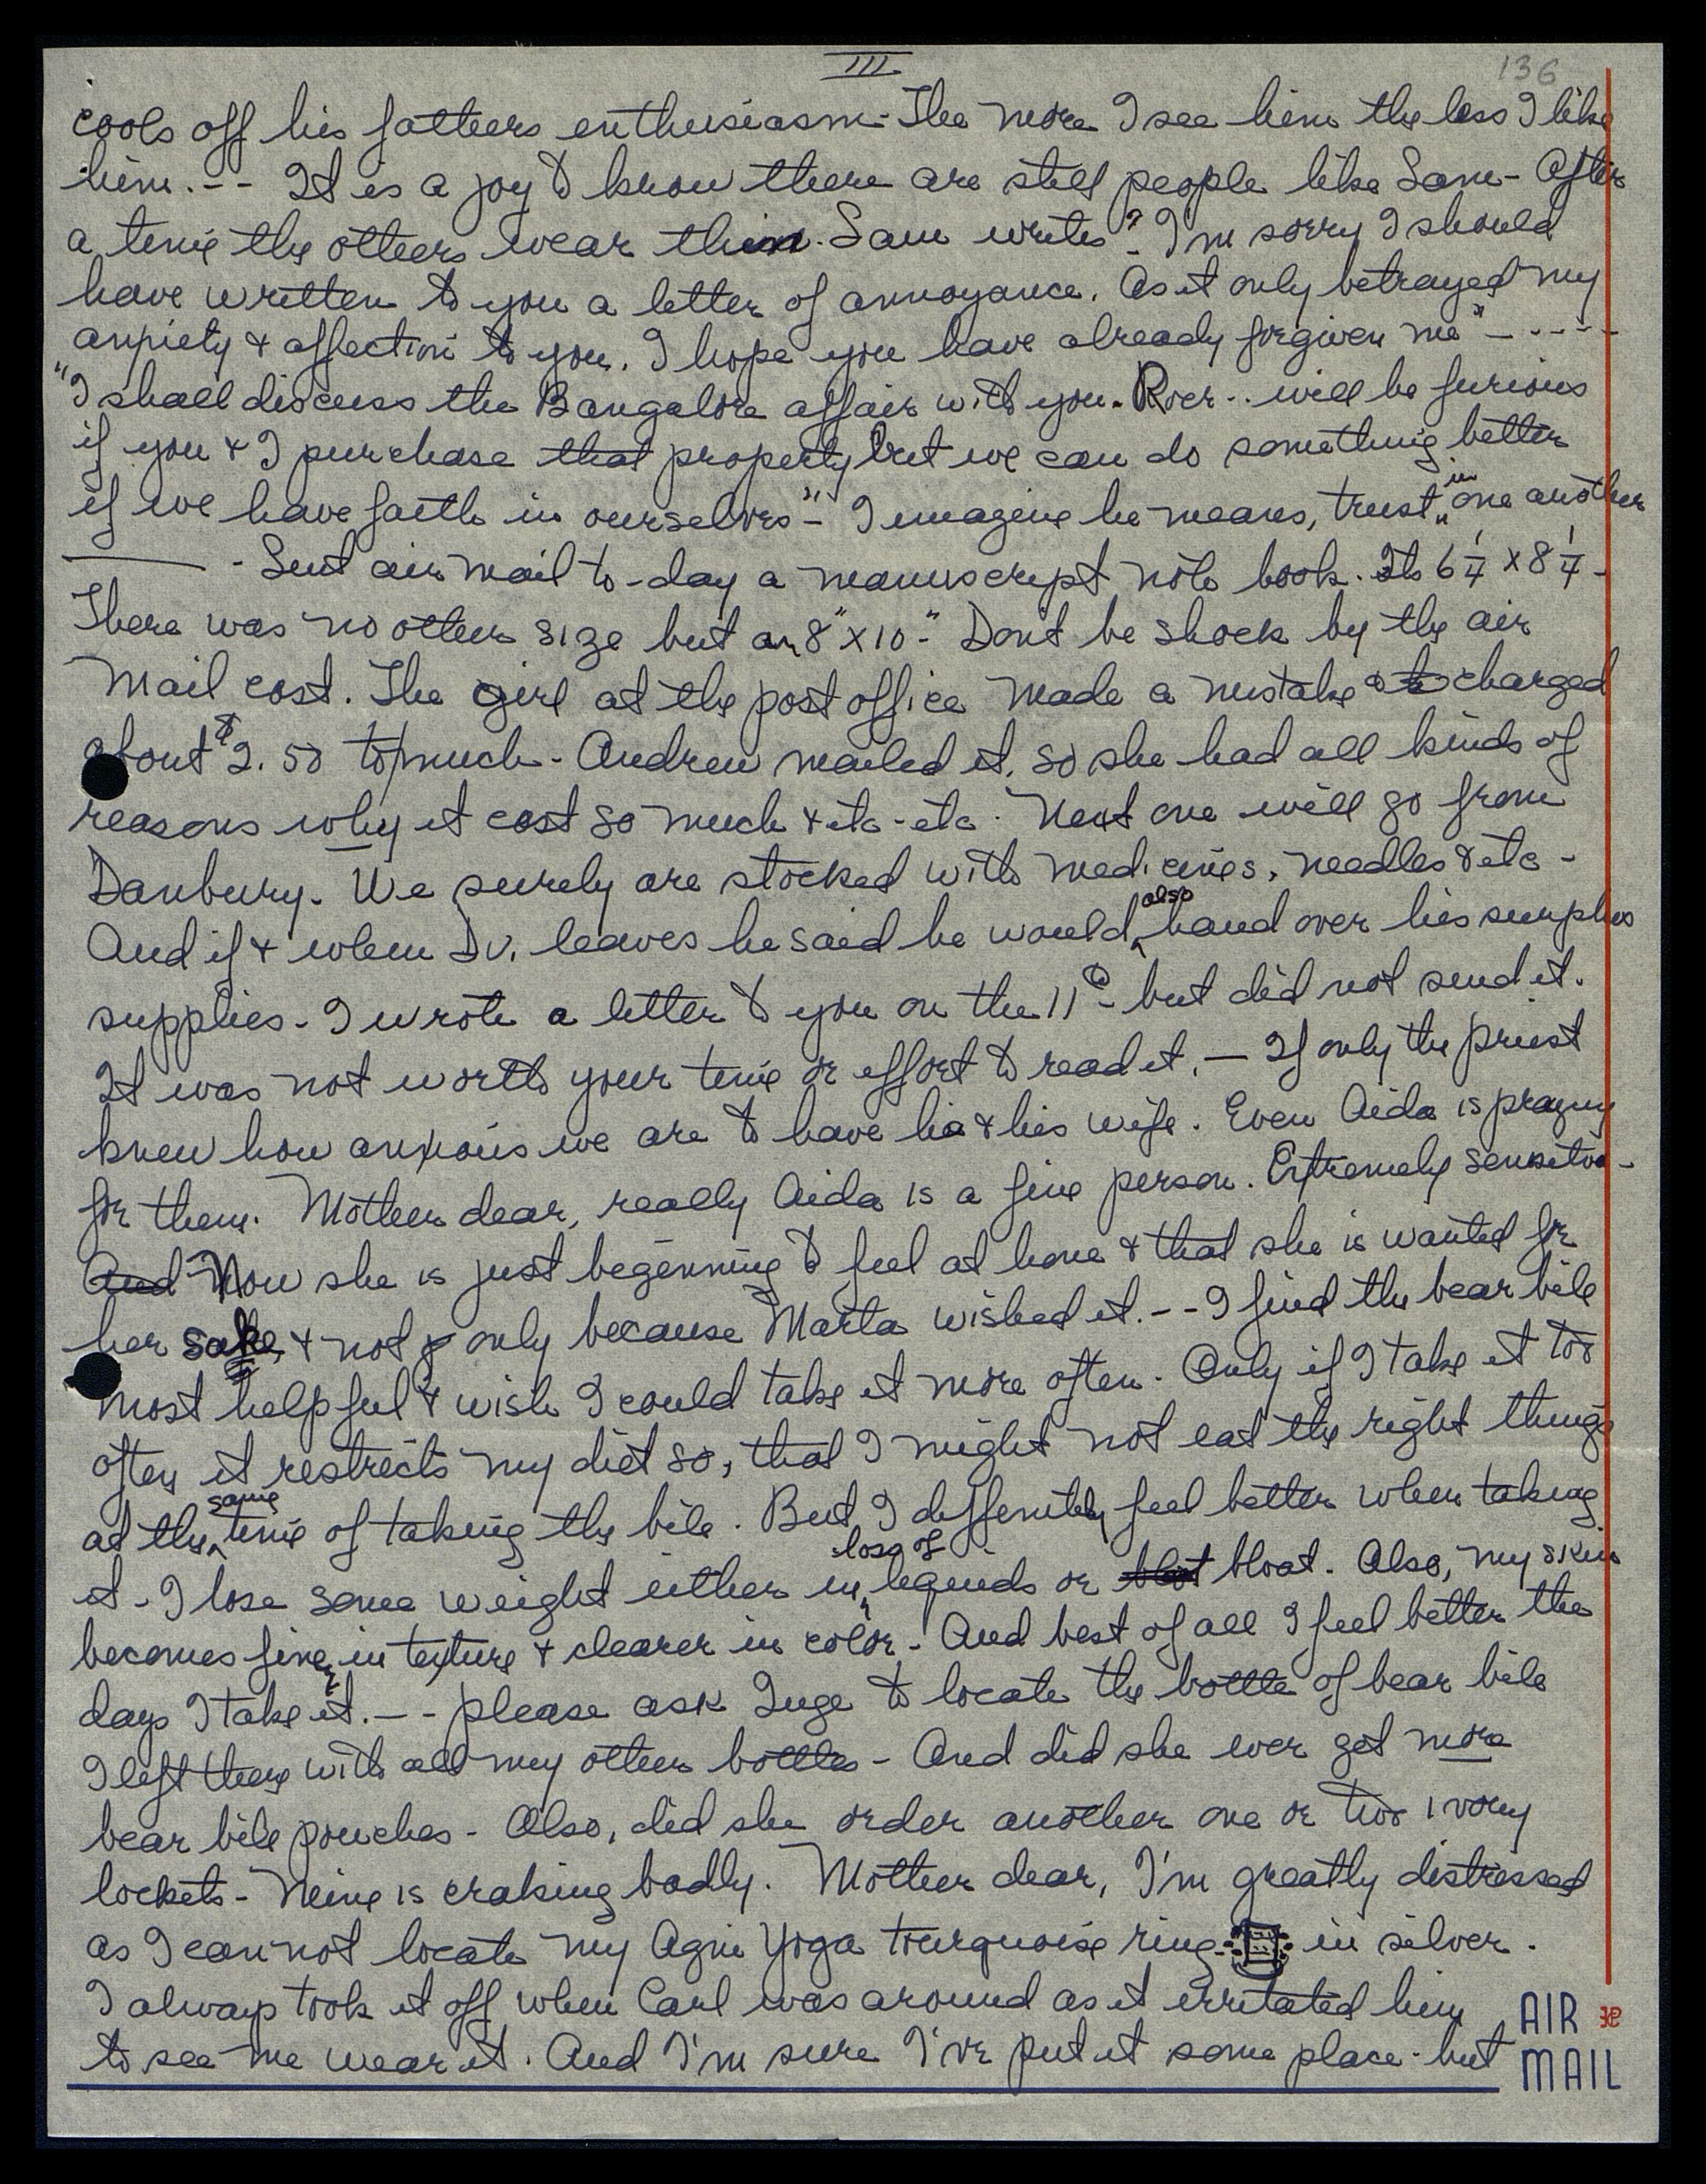 III
136
cools off his fathers enthusiasm - The more I see him the less I like
him. -- It is a joy to know there are still people like Sam - After
a time the others wear thin. Sam writes "I'm sorry I should
have written to you a letter of annoyance. As it only betrayed my
anxiety & affection to you. I hope you have already forgiven me" - - - - -
"I shall discuss the Bangalore affair with you. Roer.. will be furious
if you & I purchase that property but we can do something better
if we have faith in ourselves" - I imagine he means, trust in one another
- Sent air mail to-day a manuscript note book. Its 6 1/4 x 8 1/4 -
There was no other size but an 8" x 10-" Dont be shock by the air
mail cost. The girl at the post office made a mistake & charged
about $2.50 to much - Andrew mailed it, so she had all kinds of
reasons why it cost so much & etc - etc. Next one will go from
Danbury. We surely are stocked with medicines, needles & etc -
And if & when Dv. leaves he said he would also hand over his surplus
supplies - I wrote a letter to you on the 11th - but did not send it.
It was not worth your time or effort to read it. — If only the priest
knew how anxious we are to have his & his wife. Even Aida is praying
for them. Mother dear, really Aida is a fine person. Extremely sensitive -
And Now she is just beginning to feel at home & that she is wanted for
her sake, & not only because Marta wished it. -- I find the bear bile
most helpful & wish I could take it more often. Only if I take it too
often it restricts my diet so, that I might not eat the right things
at the same time of taking the bile. But I deffenitely feel better when taking
it - I lose some weight either in loss of liquids or bloat. Also, my skin
becomes finer in texture & clearer in color. And best of all I feel better the
days I take it. -- please ask Inge to locate the bottle of bear bile
I left there with all my other bottles - And did she ever get more
bear bile pouches - Also, did she order another one or two ivory
lockets - Mine is craking badly. Mother dear, I'm greatly distressed
as I can not locate my Agni Yoga tourquoise ring in silver.
I always took it off when Carl was around as it erritated him
to see me wear it. And I'm sure I've put it some place - but
AIR
MAIL